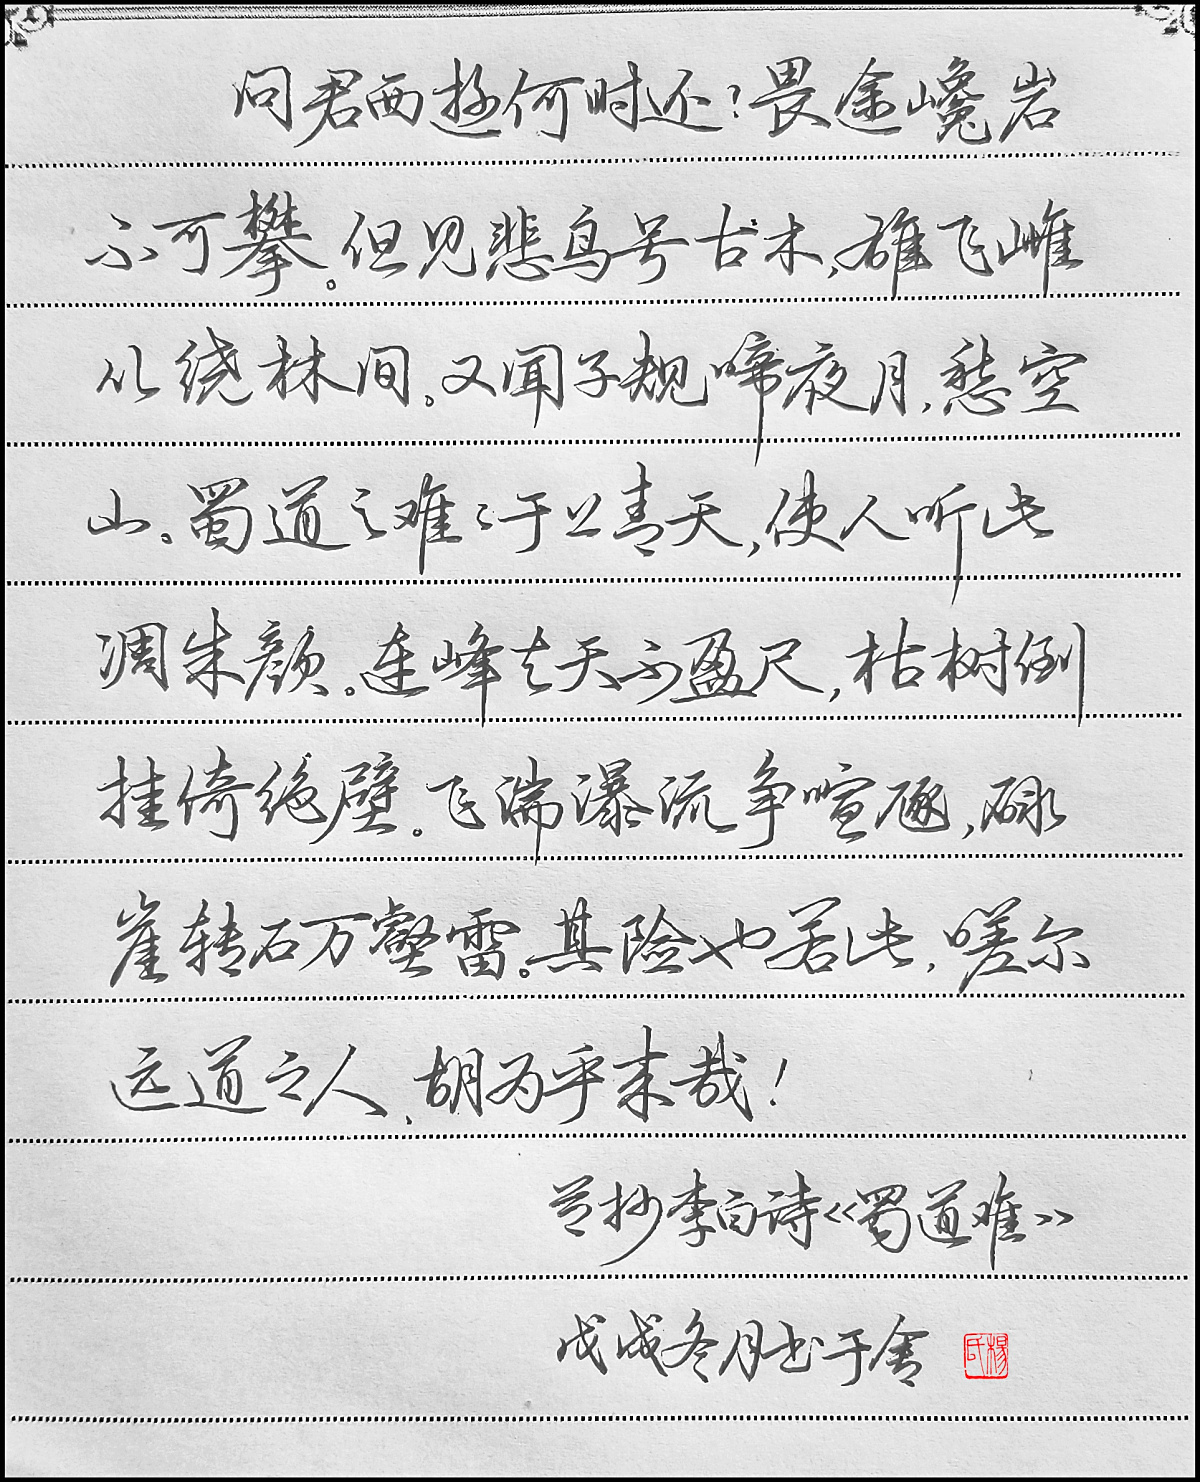 问君西游何时还？畏途巉岩
不可攀。但见悲鸟号古木，雄飞雌
从绕林间。又闻子规啼夜月，愁空
山。蜀道之难〻于上青天，使人听此
凋朱颜。连峰去天不盈尺，枯树倒
挂倚绝壁。飞湍瀑流争喧豗，砯
崖转石万壑雷。其险也若此，嗟尔
远道之人，胡为乎来哉！
节抄李白诗《蜀道难》
戊戌冬月书于舍
杨氏